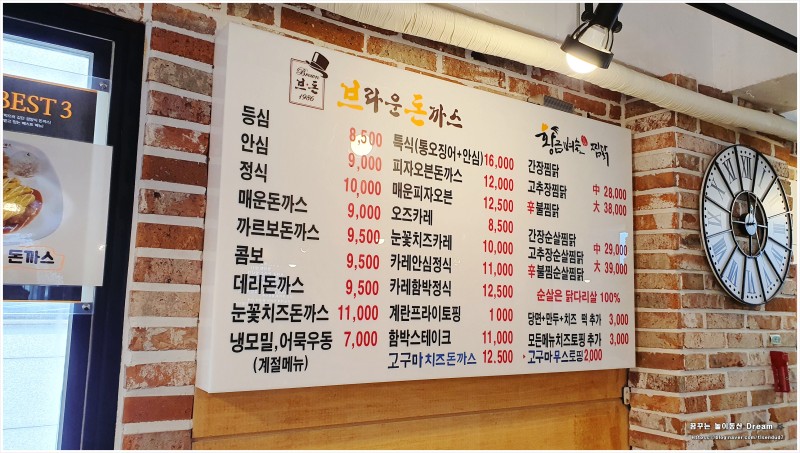 BEST 3
돈까스
Brown
브·돈
1986
브라운돈까스
등심 8,500
안심 9,000
정식 10,000
매운돈까스 9,000
까르보돈까스 9,500
콤보 9,500
데리돈까스 9,500
눈꽃치즈돈까스 11,000
냉모밀,어묵우동 7,000
(계절메뉴)
특식(통오징어+안심) 16,000
피자오븐돈까스 12,000
매운피자오븐 12,500
오즈카레 8,500
눈꽃치즈카레 10,000
카레안심정식 11,000
카레함박정식 12,500
계란프라이토핑 1000
함박스테이크 11,000
고구마치즈돈까스 12.500
찜닭
간장찜닭
고추장찜닭 中 28,000
辛불찜닭 大 38,000
간장순살찜닭
고추장순살찜닭 中 29,000
辛불찜순살찜닭 大 39,000
순살은 닭다리살 100%
당면+만두+치즈 떡 추가 3,000
모든메뉴치즈토핑 추가 3,000
·고구마무스토핑 2,000
꿈꾸는 놀이동산 Dream
꿈꾸는 놀이동산 Dream